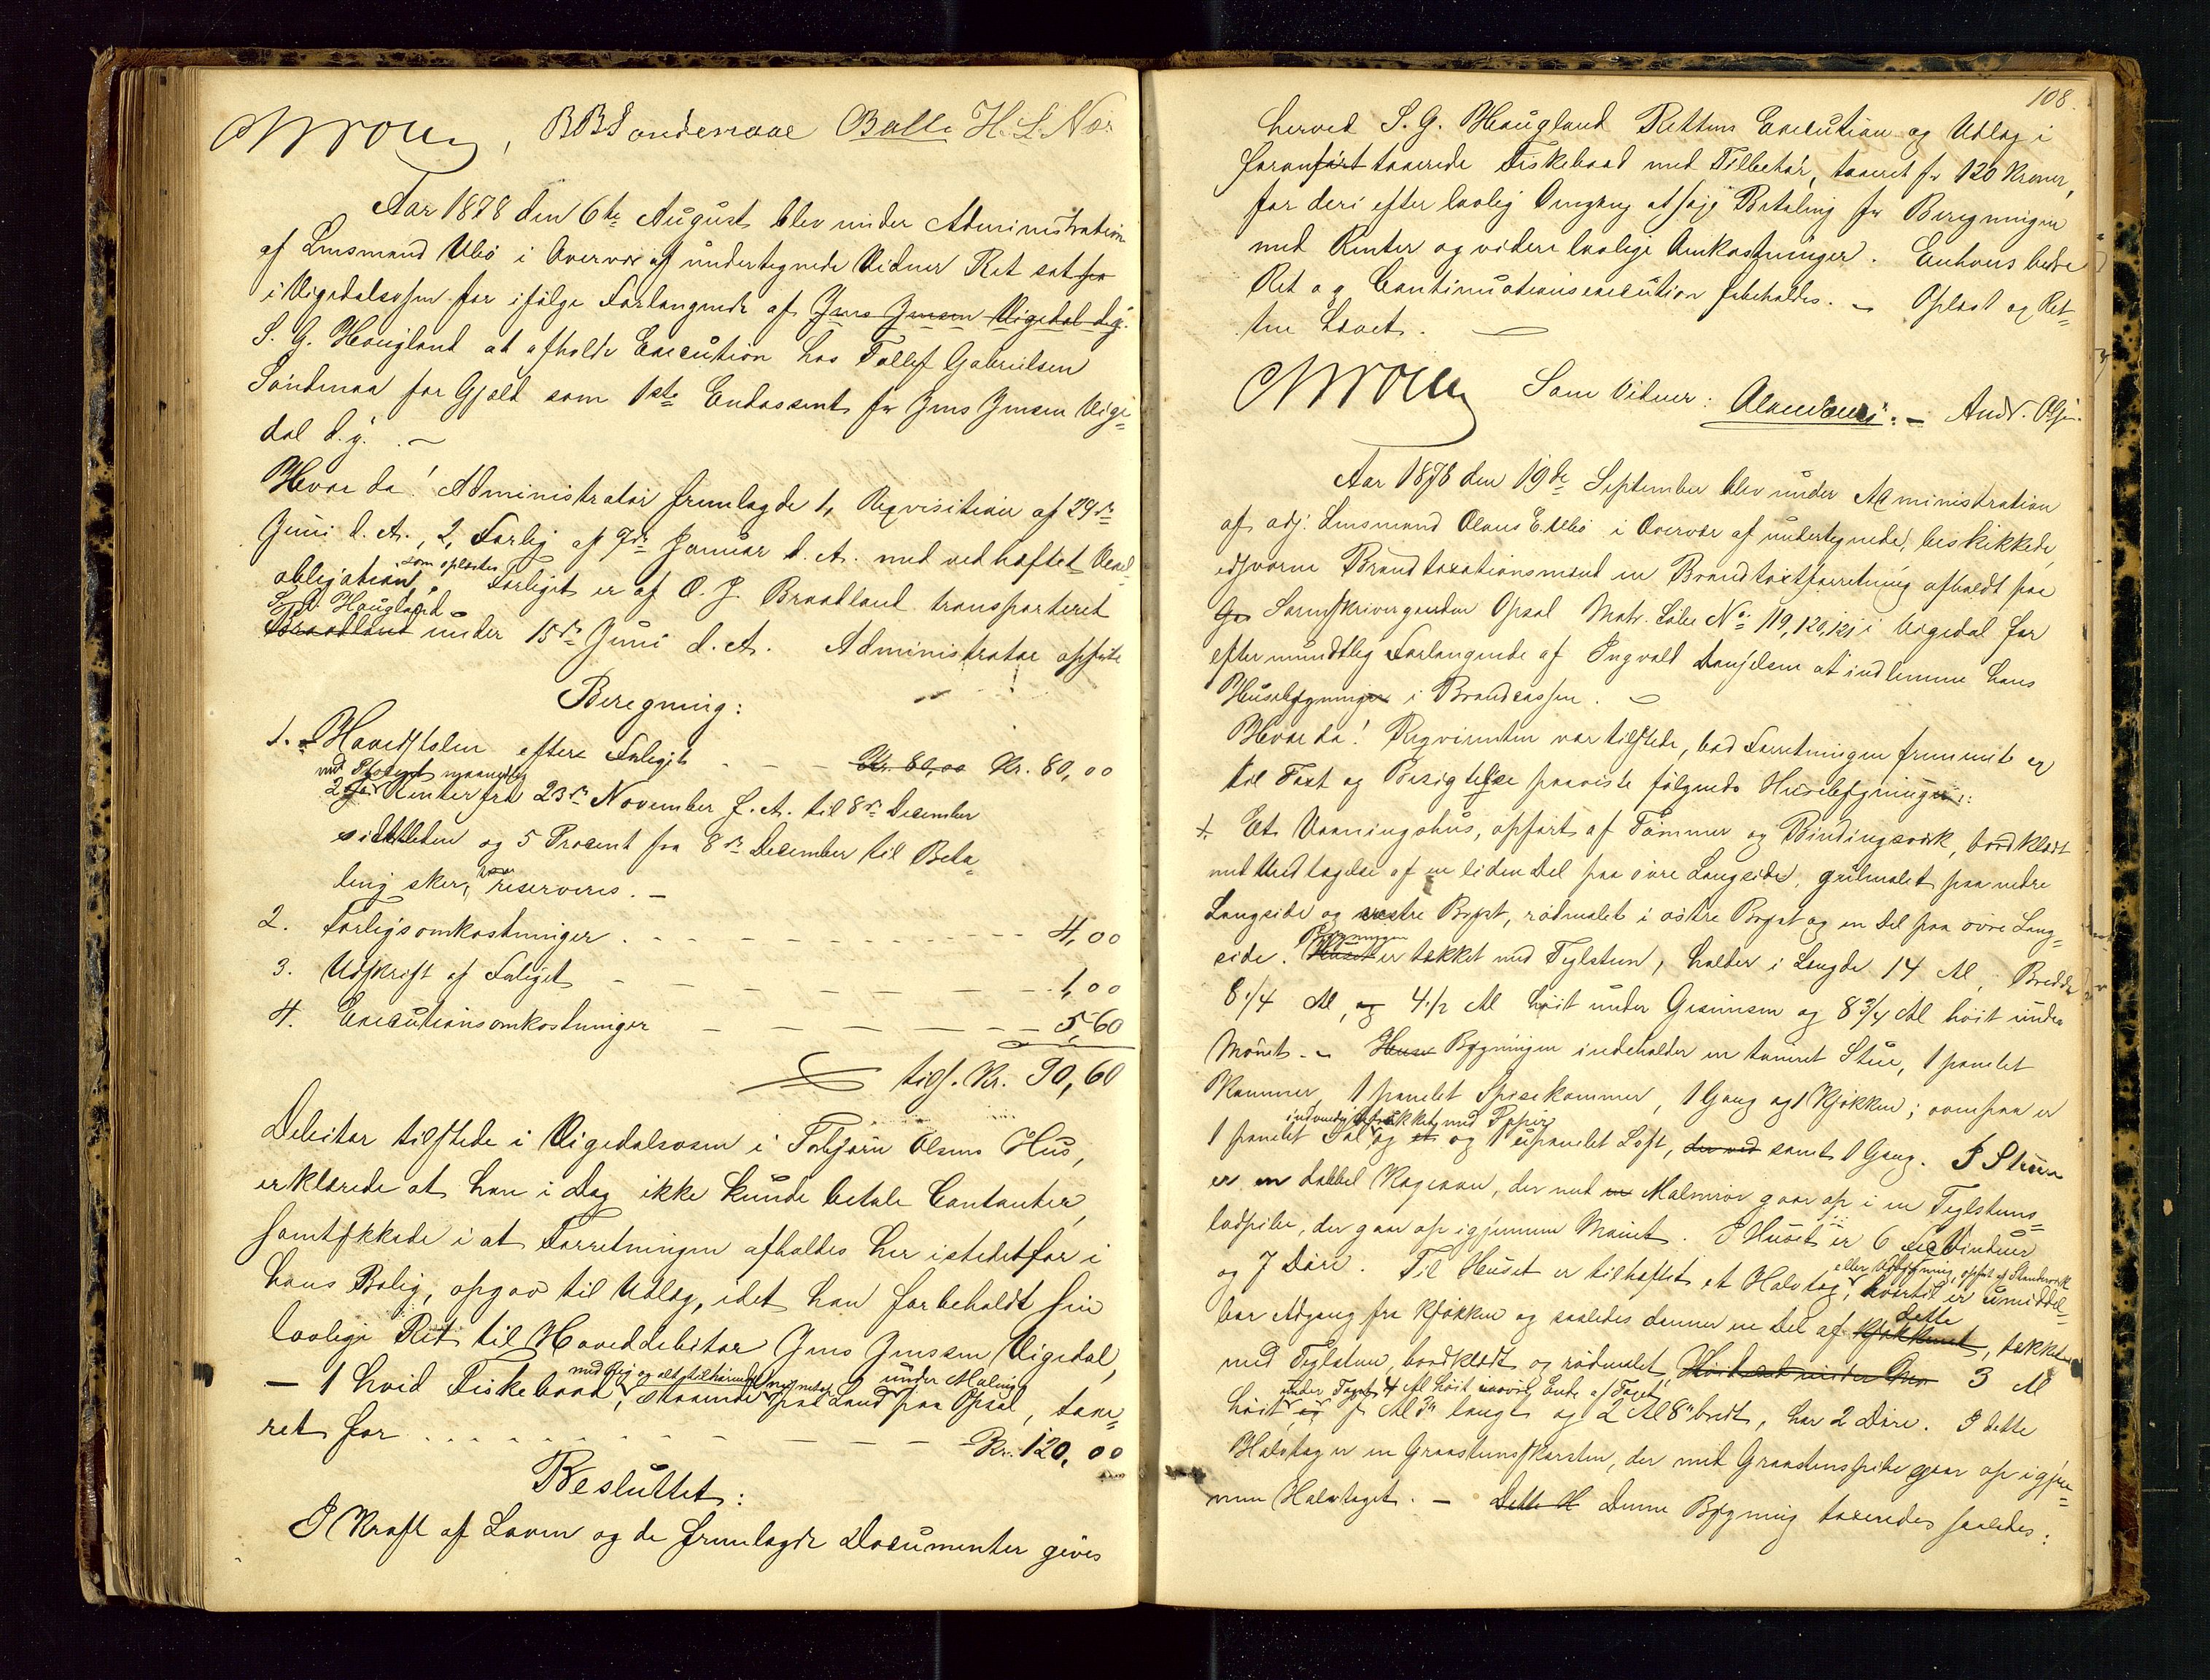 BBSonderaae Balle H. L. Nor
Aar 1878 den 6te August blev under Administration
af Lensmand Ulbø i Overvær af undertegnede Vidner Ret sat paa
i Vigedalsosen for ifølge Forlangende af Jens Jensen Vigedal d.y.
S. G. Haugland at afholde Execution hos Tollef Gabrielsen
Søndenaa for Gjæld som 1ste Endossent for Jens Jensen Vige=
dal d.y. . —
Hvor da! Administrator fremlagde 1, Reqvisition af 29de
Juni d. A., 2, Forlig af 7de Januar d. A. med vedhæftet Vexel-
obligation, som oplæstes. Forliget er af O. J. Braadland transporteret
S. G. Haugland
Braadland under 15de Juni d. A. Administrator opførte
Beregning:
1. Hovedstolen efter Forliget - - - Kr. 80,00 Kr. 80,00
med Procent maanedlig
Renter fra 23de November f. A. til 8de December
sidstleden og 5 Procent fra 8de December til Beta-
ling sker, reserveres. —
2. Forligsomkostninger - - - 4,00
3. Udskrift af Forliget - - - 1,00
4. Executionsomkostninger - - - 5,60
tils. Kr. 90,60
Debitor tilstede i Vigedalsosen i Torbjørn Olsens Hus,
erklærede at han i Dag ikke kunde betale Contanter,
samtykkede i at Forretningen afholdes her istedetfor i
hans Bolig, opgav til Udlæg, idet han forbeholdt sin
lovlige Ret til Hoveddebitor Jens Jensen Vigedal,
med Rig og alt tilhørende under Maling
— 1 hvid Fiskebaad, staaende paa Land paa Opsal, taxe=
ret for . . . . . . - - - Kr. 120,00
Besluttet:
I Kraft af Loven og de fremlagde Documenter gives
108.
herved S. G. Haugland Rettens Execution og Udlæg i
foranført taxerede Fiskebaad med Tilbehør, taxeret for 120 Kroner,
for deri efter lovlig Omgang at søge Betaling for Beregningen
med Renter og videre lovlige Omkostninger. Enhvers bedre
Ret og Continuationsexecution forbeholdes. — Oplæst og Ret=
ten hævet. —
Som Vidner: And. Olsen.
Aar 1878 den 19de September blev under Administration
af adj. Lensmand Olaus E. Ulbø i Overvær af undertegnede, beskikkede,
edsvorne Brandtaxationsmænd en Brandtaxtforretning afholdt paa
Gd Sorenskrivergaarden Opsal Matr. Løbe No 119, 120, 121 i Vigedal for
efter mundtlig Forlangende af Ingvald Danielsen at indlemme hans
Husebygninger i Brandcassen. —
Hvor da! Reqvirenten var tilstede, bad Forretningen fremmet og
til Taxt og Besigtelse paaviste følgende Husebygninger:
1. Et Vaaningshus, opført af Tømmer og Bindingsværk, bordklædt
med Undtagelse af en liden Del paa øvre Langside, gulmalet paa nedre
Langside og vestre Bryst, rødmalet i østre Bryst og en Del paa øvre Lang=
side. Huset Bygningen er tækket med Teglsten, holder i Længde 14 Al, Bredde
8 1/4 Al, og 4 1/2 Al høit under Gesimsen og 8 3/4 Al høit under
Mønet. — Huse Bygningen indeholder en tømret Stue, 1 panelet
Kammer, 1 panelet Spisekammer, 1 Gang og 1 Kjøkken; ovenpaa er
indvendig betrukket med Papir
1 panelet Sal og et og 1 upanelet Loft, der ved samt 1 Gang. I Stuen
er en dobbel Kogeovn, der med en Malmrør gaar op i en Teglstens=
ladpibe, der gaar op igjennem Mønet. I Huset er 6 Vinduer
og 7 Døre. Til Huset er tilhæftet et Halvtag, eller Udbygning, opført af Standværk hvortil er umiddel=
bar Adgang fra Kjøkken og saaledes danner en Del af Kjøkkenet dette, tækket
med Teglsten, bordklædt og rødmalet, 3 Al
under Taget 4 Al høit i øvre Ende af Taget,
høit, og Al 3" langt og 2 Al 8" bredt, har 2 Døre. I dette
Halvtag er en Graastensskorsten, der med Graastenspibe gaar op igjen=
nem Halvtaget. — Dette H Denne Bygning taxeredes saaledes: